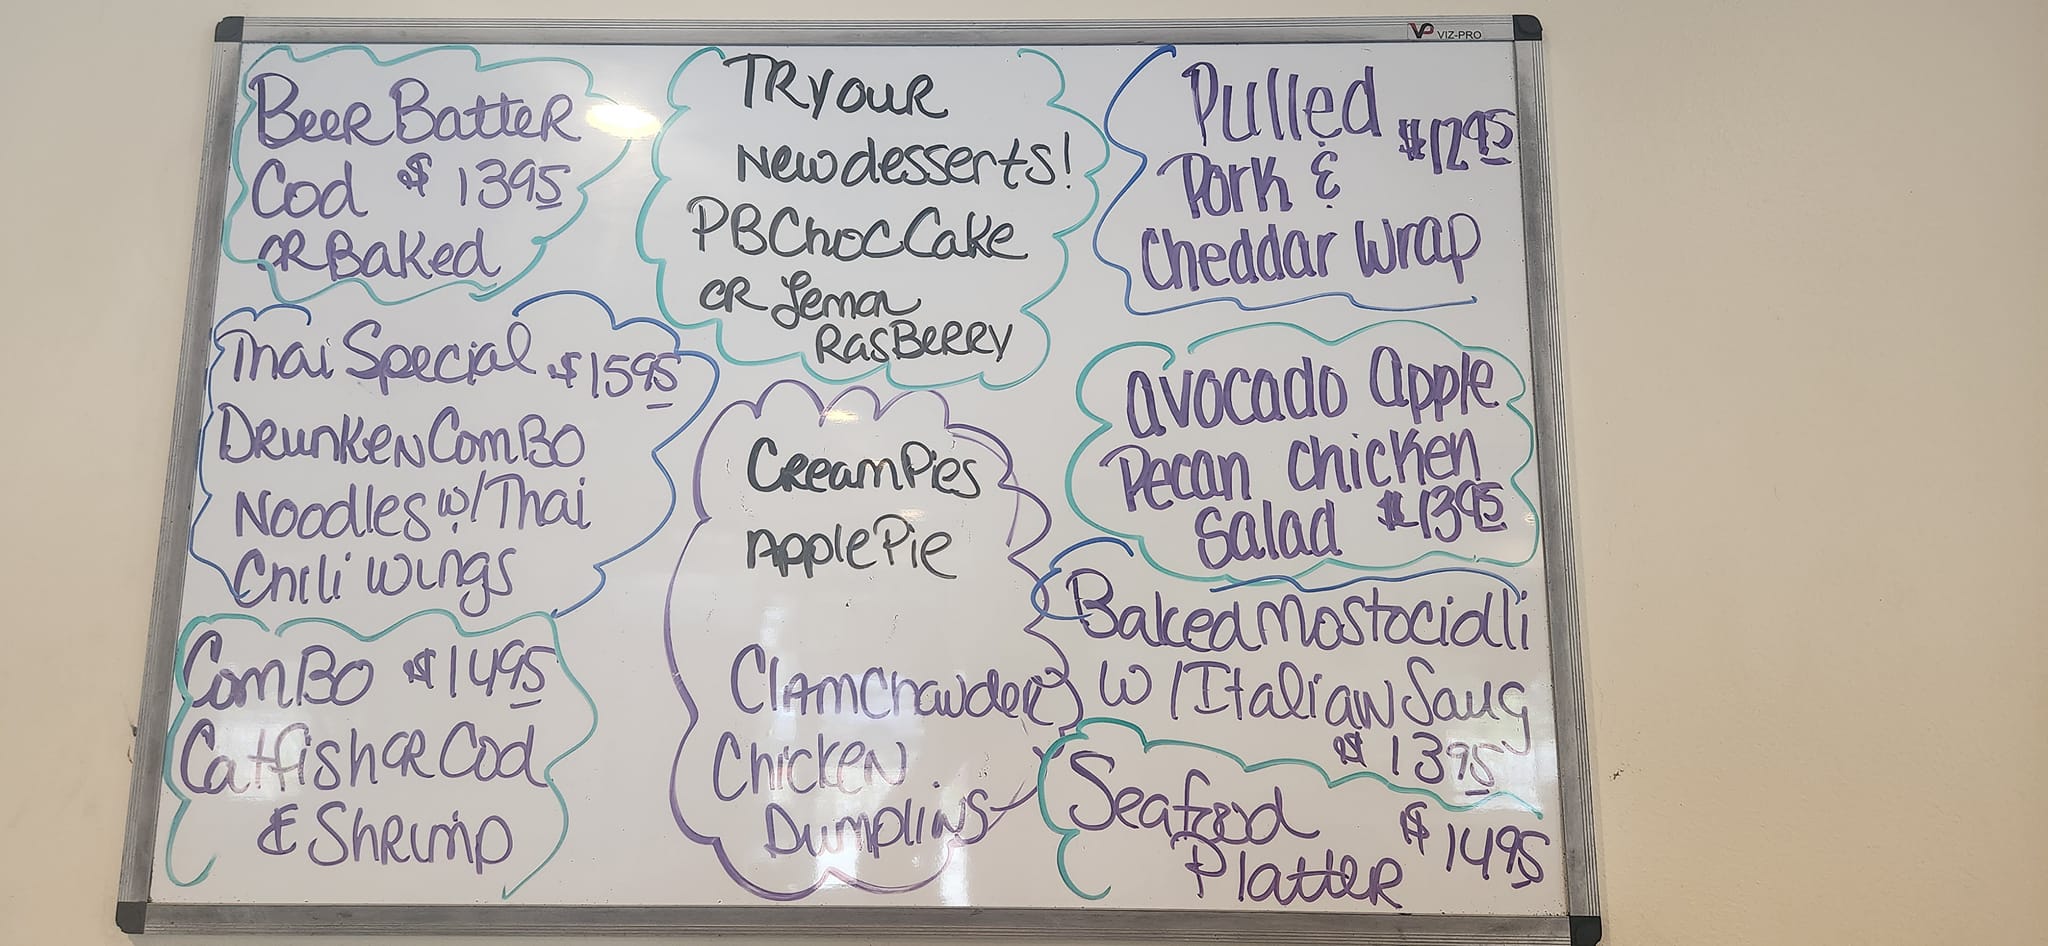 VP VIZ-PRO
Beer Batter
Cod $1395
or Baked
Thai Special $1595
Drunken Combo
Noodles w/Thai
Chili Wings
Combo $1495
Catfish or Cod
& Shrimp
Try our
New desserts!
PB Choc Cake
or Lemon
Rasberry
Cream Pies
Apple Pie
Clam Chawder
Chicken
Dumplins
Pulled $1295
Pork &
Cheddar Wrap
Avocado Apple
Pecan Chicken
Salad $1395
Baked Mostociolli
w/Italian Saug
$1395
Seafood
Platter $1495